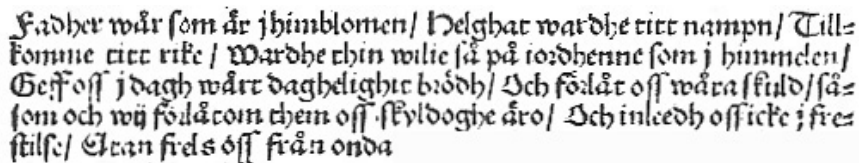 Fadher wår som år jhimblomen/ Helghat wardhe titt nampn/ Till=
komme titt rike/ Wardhe thin wilie så på iordhenne som j himmelen/
Geff oss j dagh wårt daghelighit brödh/ Och förlåt oss wåra skuld/ så=
som och wij förlåtom them oss skyldoghe åro/ Och inleedh oss icke j fre=
stilse/ Utan frels oss från onda